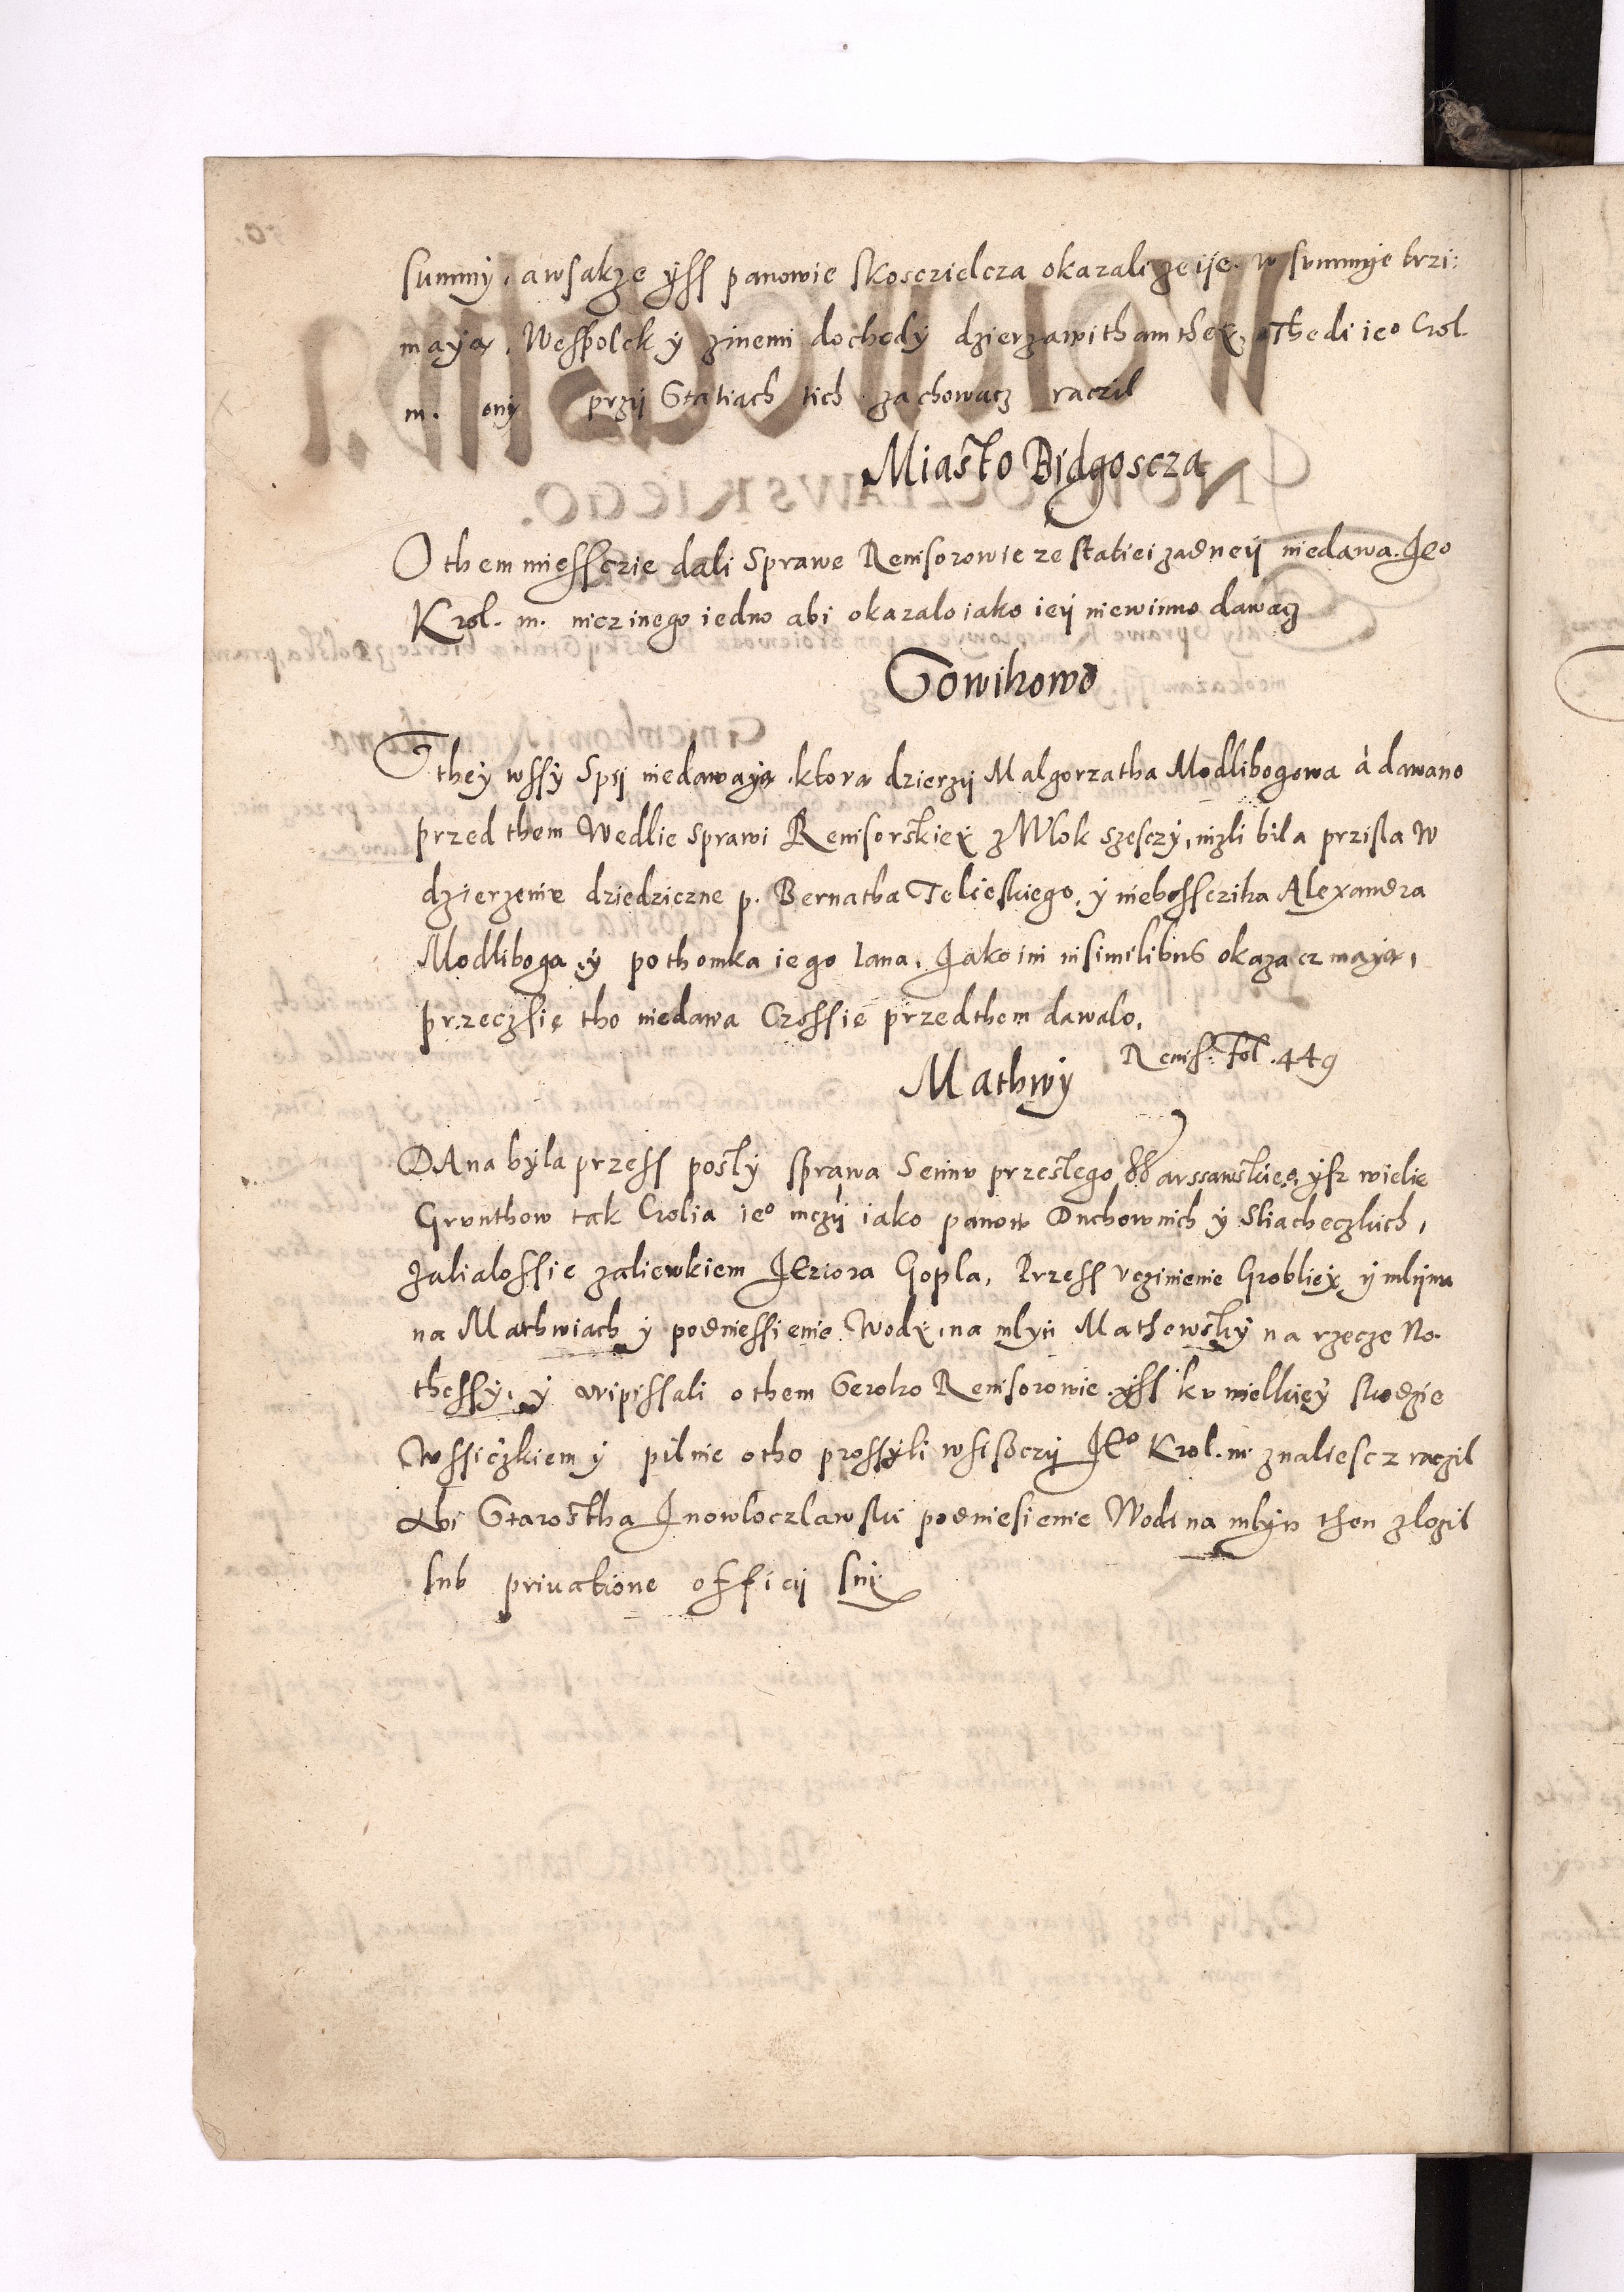 summy, a wsakze yss panowie skosczielcza okazali ze ije w summye trzi:
maya, Wespolek y zinemi dochody dzierzawi tham thex, Thedi ieo Crol
m. ony przij Statiach tich zachowacz raczil
Miasto Bidgoscza
O them miessczie dali Sprawe Rewisorowie ze statiei zadneij niedawa. Jeo
Krol. m. nicz inego iedno abi okazalo iako ieij niewinno dawacz
Gowikowo
Z they wssy Spij niedawaya ktora dzierzij Malgorzatha Modlibogowa à dawano
przed them Wedlie sprawi Rewisorskiey z Wlok szesczy, nizli bila przisla w
dzierzenie dziedziczne p. Bernatha Telieskiego, y niebossczika Alexandra
Modliboga, y pothomka iego Iana, Jako in insimilibus okazacz maya,
przeczsię tho niedawa Czossie przedthem dawalo,
Rewis: Fol. 449
Mathwy
DAna była przess posły sprawa Seimu przeslego Warssawskieo, ysz wielie
Grunthow tak Crolia ieo mczij iako panow Duchownich y Sliacheczkich,
zalialossie zaliewkiem JEziora Gopla, Przess vczinienie Grobliey y mlijnu
na Mathwiach y podniessienie Wody, na mlyn Mathowsky na rzecze No-
thessy, y wipissali othem Seroko Rewisorowie yss ku wielkiey skodzie
Wssiczkiem y pilnie otho prossyli wsisczy JEo Krol. m. znaliescz raczil
Abi Starostha Jnowloczlawski podniesienie Wodi na mlyn then zlozil
sub priuatione officij sui